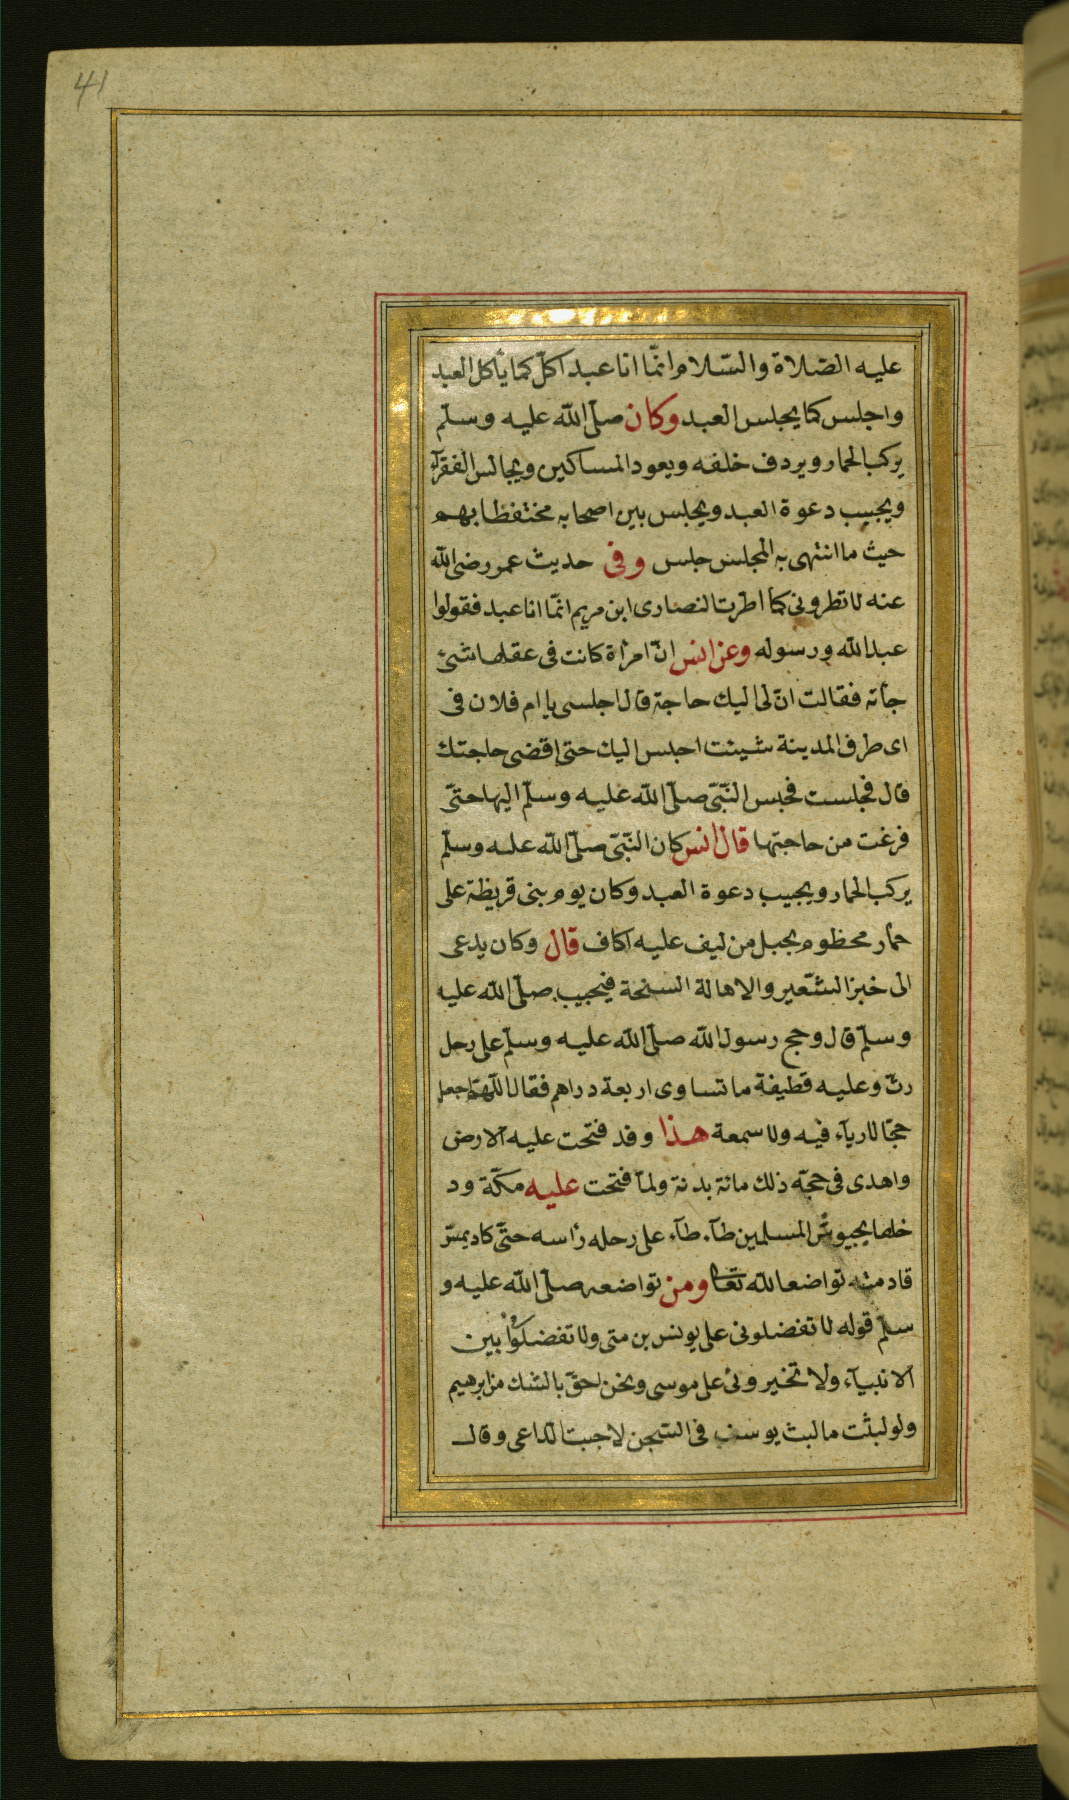 41
عليه الصّلاة والسّلام انّما انا عبد اكل كما يأكل العبد
واجلس كما يجلس العبد وكان صلّى الله عليه وسلّم
يركب الحمار ويردف خلفه ويعود المساكين ويجالس الفقرآء
ويجيب دعوة العبد ويجلس بين اصحابه مختفظا بهم
حيث ما انتهى به المجلس جلس وفى حديث عمر رضى الله
عنه لا تطرونى كما اطرت النصارى ابن مريم انّما انا عبد فقولوا
عبد الله ورسوله وعن انس انّ امرأة كانت فى عقلها شئ
جأته فقالت انّ لى اليك حاجة قال اجلسى يا ام فلان فى
اى طرف المدينة شيئت اجلس اليك حتى اقضى حاجتك
قال فجلست فجلس النّبىّ صلّى الله عليه وسلّم اليها حتّى
فرغت من حاجتها قال انس كان النّبىّ صلّى الله عليه وسلّم
يركب الحمار ويجيب دعوة العبد وكان يوم بنى قريظة على
حمار محظوم بحبل من ليف عليه اكاف قال وكان يدعى
الى خبز الشّعير والاهالة السنخة فيجيب صلّى الله عليه
وسلّم قال وحج رسول الله صلّى الله عليه وسلّم على رحل
رثّ وعليه قطيفة ما تساوى اربعة دراهم فقال اللّهمّ اجعل
حجّا لا ريآء فيه ولا سمعة هذا وقد فتحت عليه الارض
واهدى فى حجّه ذلك مائة بدنة ولمّا فتحت عليه مكّة ود
خلها بجيوش المسلمين طآء طآء على رحله رأسه حتّى كاد يمسّ
قادمته تواضعا لله تعالى ومن تواضعه صلّى الله عليه و
سلّم قوله لا تفضلونى على يونس بن متى ولا تفضلوا بين
الانبيآء ولا تخيرونى على موسى ونحن احقّ بالشك من ابرهيم
ولو لبثت ما لبث يوسف فى السّجن لاجبت الدّاعى وقال